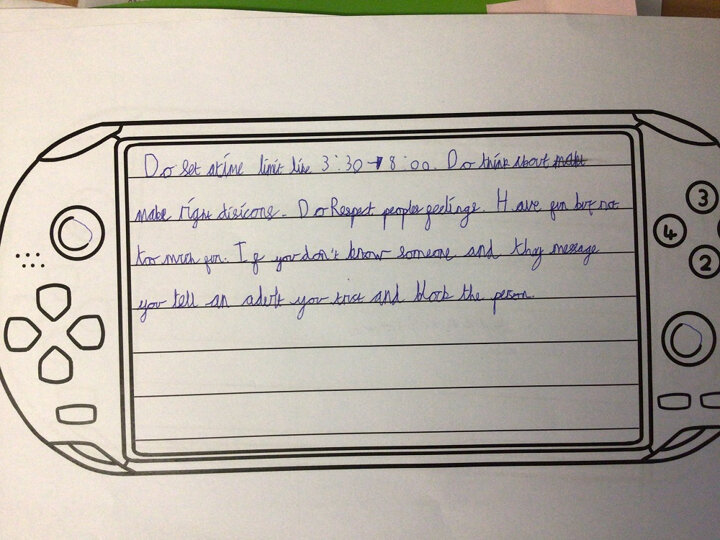 Do set atime limit like 3:30 → 8:00. Do think about make
make right disicons. Do Respect peoples feelings. Have fun but not
too much fun. If you don't know someone and they message
you tell an adult you trust and block the person.
3
4
2